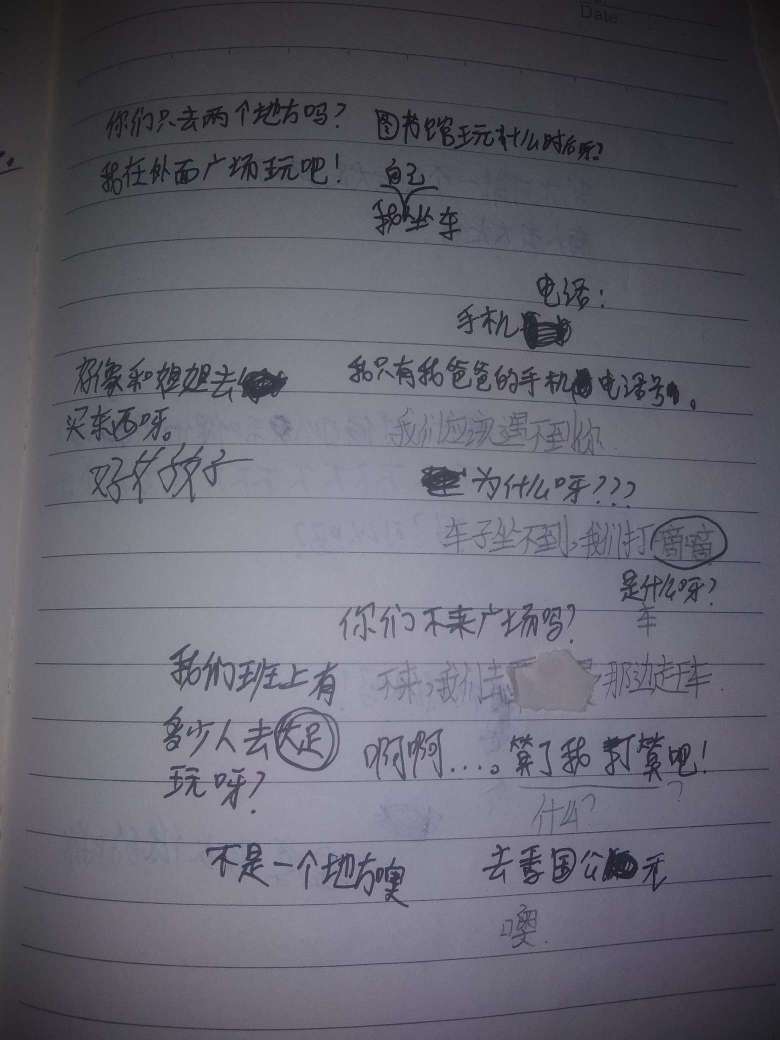 Date
你们只去两个地方吗? 图书馆玩什么时后呀?
我在外面广场玩吧! 自己
我坐车
电话:
手机
好像和姐姐去 我只有我爸爸的手机电话号。
买东西呀。 我们应该遇不到你
为什么呀???
车子坐不到,我们打
是什么呀?
你们不来广场吗? 车
我们班上有 不来,我们去 那边赶车
多少人去大足
玩呀? 啊啊....。算了我打算吧!
什么? ?
不是一个地方噢 去香国公
噢.